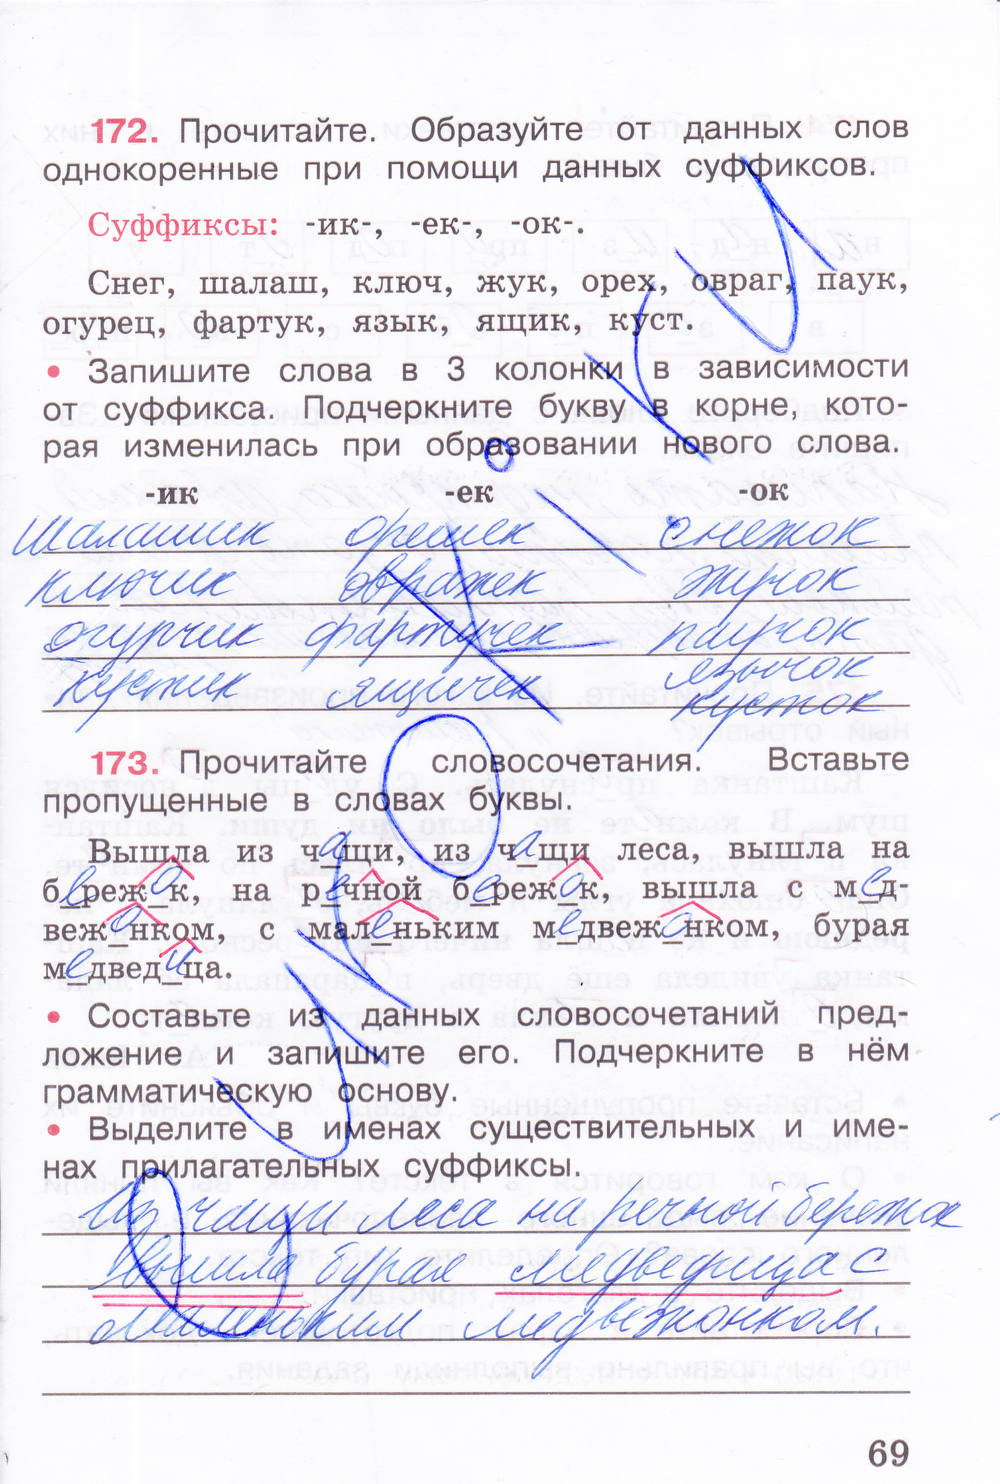 172. Прочитайте. Образуйте от данных слов
однокоренные при помощи данных суффиксов.
Суффиксы: -ик-, -ек-, -ок-.
Снег, шалаш, ключ, жук, орех, овраг, паук,
огурец, фартук, язык, ящик, куст.
• Запишите слова в 3 колонки в зависимости
от суффикса. Подчеркните букву в корне, кото-
рая изменилась при образовании нового слова.
-ик -ек -ок
шалашик орешек снежок
ключик овражек жучок
огурчик фартучек паучок
кустик ящичек язычок
кусток
173. Прочитайте словосочетания. Вставьте
пропущенные в словах буквы.
Вышла из чащи, из чащи леса, вышла на
бережок, на речной бережок, вышла с мед-
вежонком, с маленьким медвежонком, бурая
медведица.
• Составьте из данных словосочетаний пред-
ложение и запишите его. Подчеркните в нём
грамматическую основу.
• Выделите в именах существительных и име-
нах прилагательных суффиксы.
Из чащи леса на речной бережок
вышла бурая медведица с
маленьким медвежонком.
69